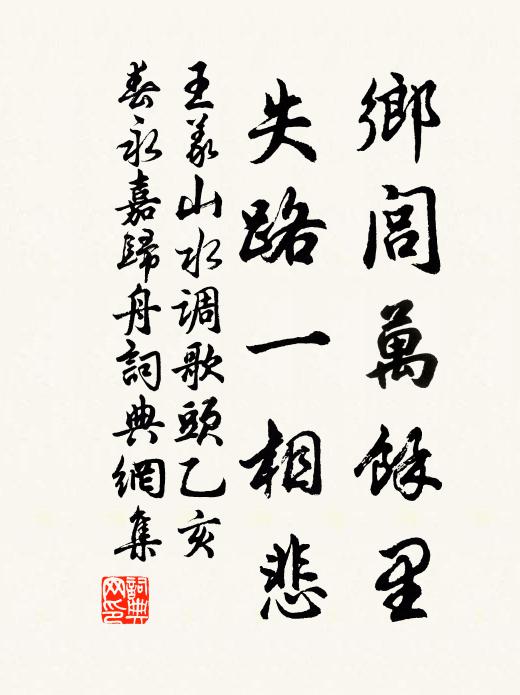 鄉閭萬餘里
失路一相悲
王義山水調歌頭乙亥
春永嘉歸舟詞典網集
詞典網印